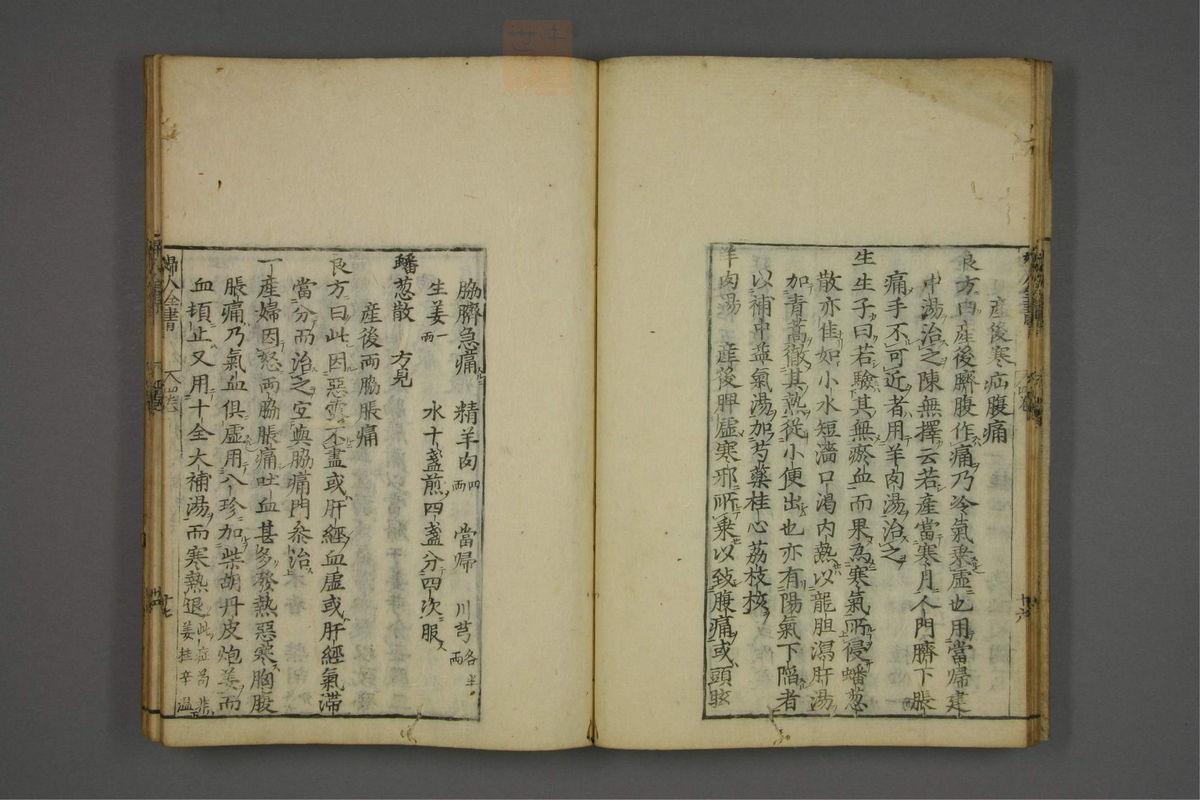 產後寒疝腹痛
良方曰產後臍腹作痛乃冷氣乗虛也用當歸建
中湯治之陳無擇云若產當寒月入門臍下脹
痛手不可近者用羊肉湯治之
生生子曰若驗其無瘀血而果為寒氣所侵蟠葱
散亦佳如小水短濇口渴內熱以龍胆瀉肝湯
加青蒿徹其熱從小便出也亦有陽氣下陷者
以補中益氣湯加芍藥桂心荔枝核
羊肉湯 產後脾虛寒邪所乗以致腹痛或頭眩
脇臍急痛 精羊肉四兩 當歸 川芎各半兩
生姜一兩 水十盞煎四盞分四次服
蟠葱散 方見
產後兩脇脹痛
良方曰此因惡露不盡或肝經血虛或肝經氣滯
當分而治之宜與脇痛門叅治
一產婦因怒兩脇脹痛吐血甚多發熱惡寒胸腹
脹痛乃氣血俱虛用八珍加柴胡丹皮炮姜而
血頓止又用十全大補湯而寒熱退此症苟非姜桂辛溫
婦人全書 卷 廿七